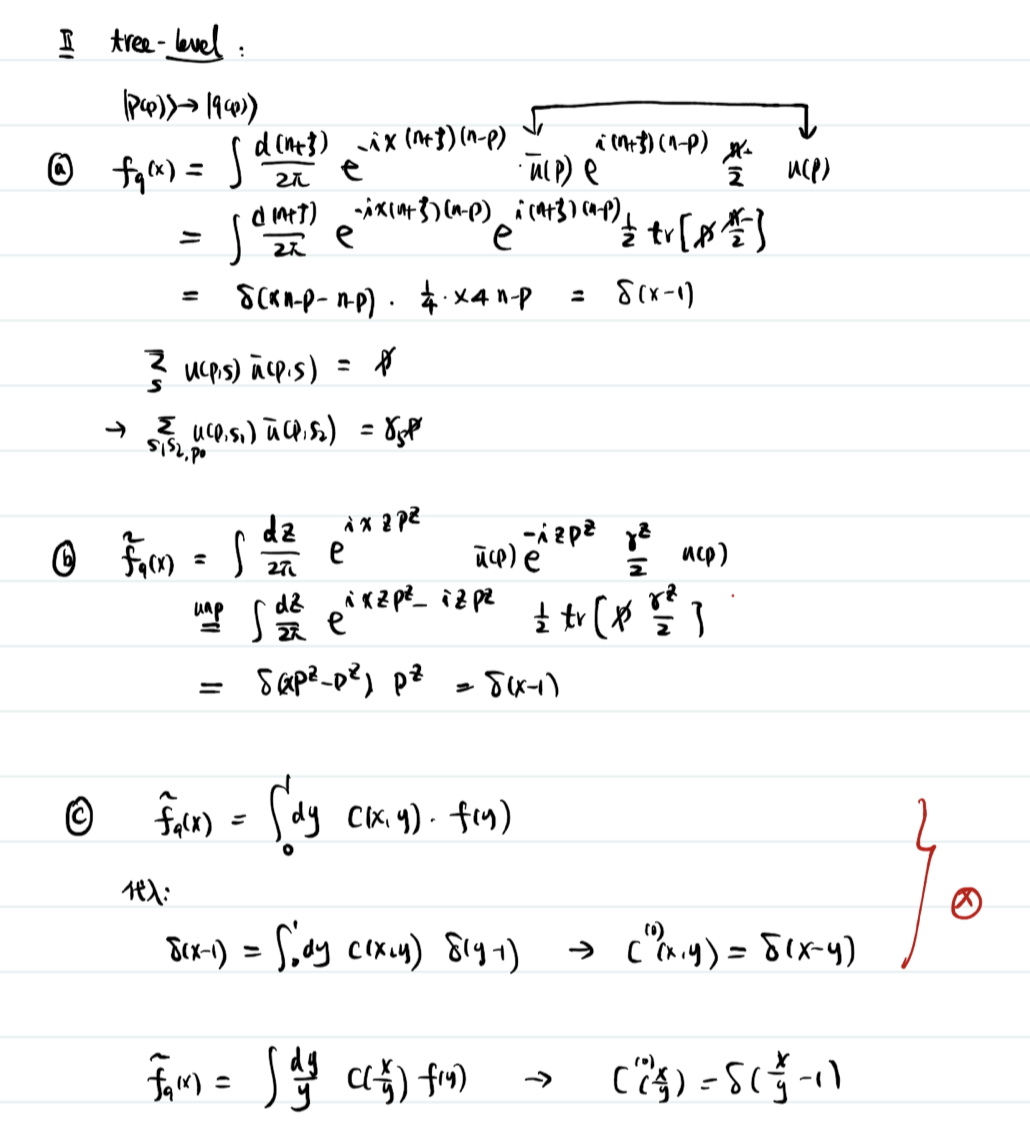 II tree-level :
|P(p)⟩→|q(p)⟩
ⓐ f_q(x) = ∫ d(n+ξ)/2π e^{-ix(n+ξ)(n-p)} ū(p) e^{i(n+ξ)(n-p)} n̸-/2 u(p)
= ∫ d(n+ξ)/2π e^{-ix(n+ξ)(n-p)} e^{i(n+ξ)(n-p)} 1/2 tr[p̸ n̸-/2]
= δ(xn-p - n-p) · 1/4 · x4 n-p = δ(x-1)
∑_s u(p,s) ū(p,s) = p̸
→ ∑_{s₁s₂,po} u(p,s₁) ū(p,s₂) = γ₅p̸
ⓑ f̃_q(x) = ∫ dz/2π e^{ixzp^z} ū(p) e^{-izp^z} γ^z/2 u(p)
unp = ∫ dz/2π e^{ixzp^z - izp^z} 1/2 tr[p̸ γ^z/2]
= δ(xp^z - p^z) p^z = δ(x-1)
ⓒ f̃_q(x) = ∫₀¹ dy C(x,y) · f(y)
代入:
δ(x-1) = ∫₀¹ dy C(x,y) δ(y-1) → C^{(0)}(x,y) = δ(x-y)
ⓧ
f̃_q(x) = ∫ dy/y C(x/y) f(y) → C^{(0)}(x/y) = δ(x/y - 1)